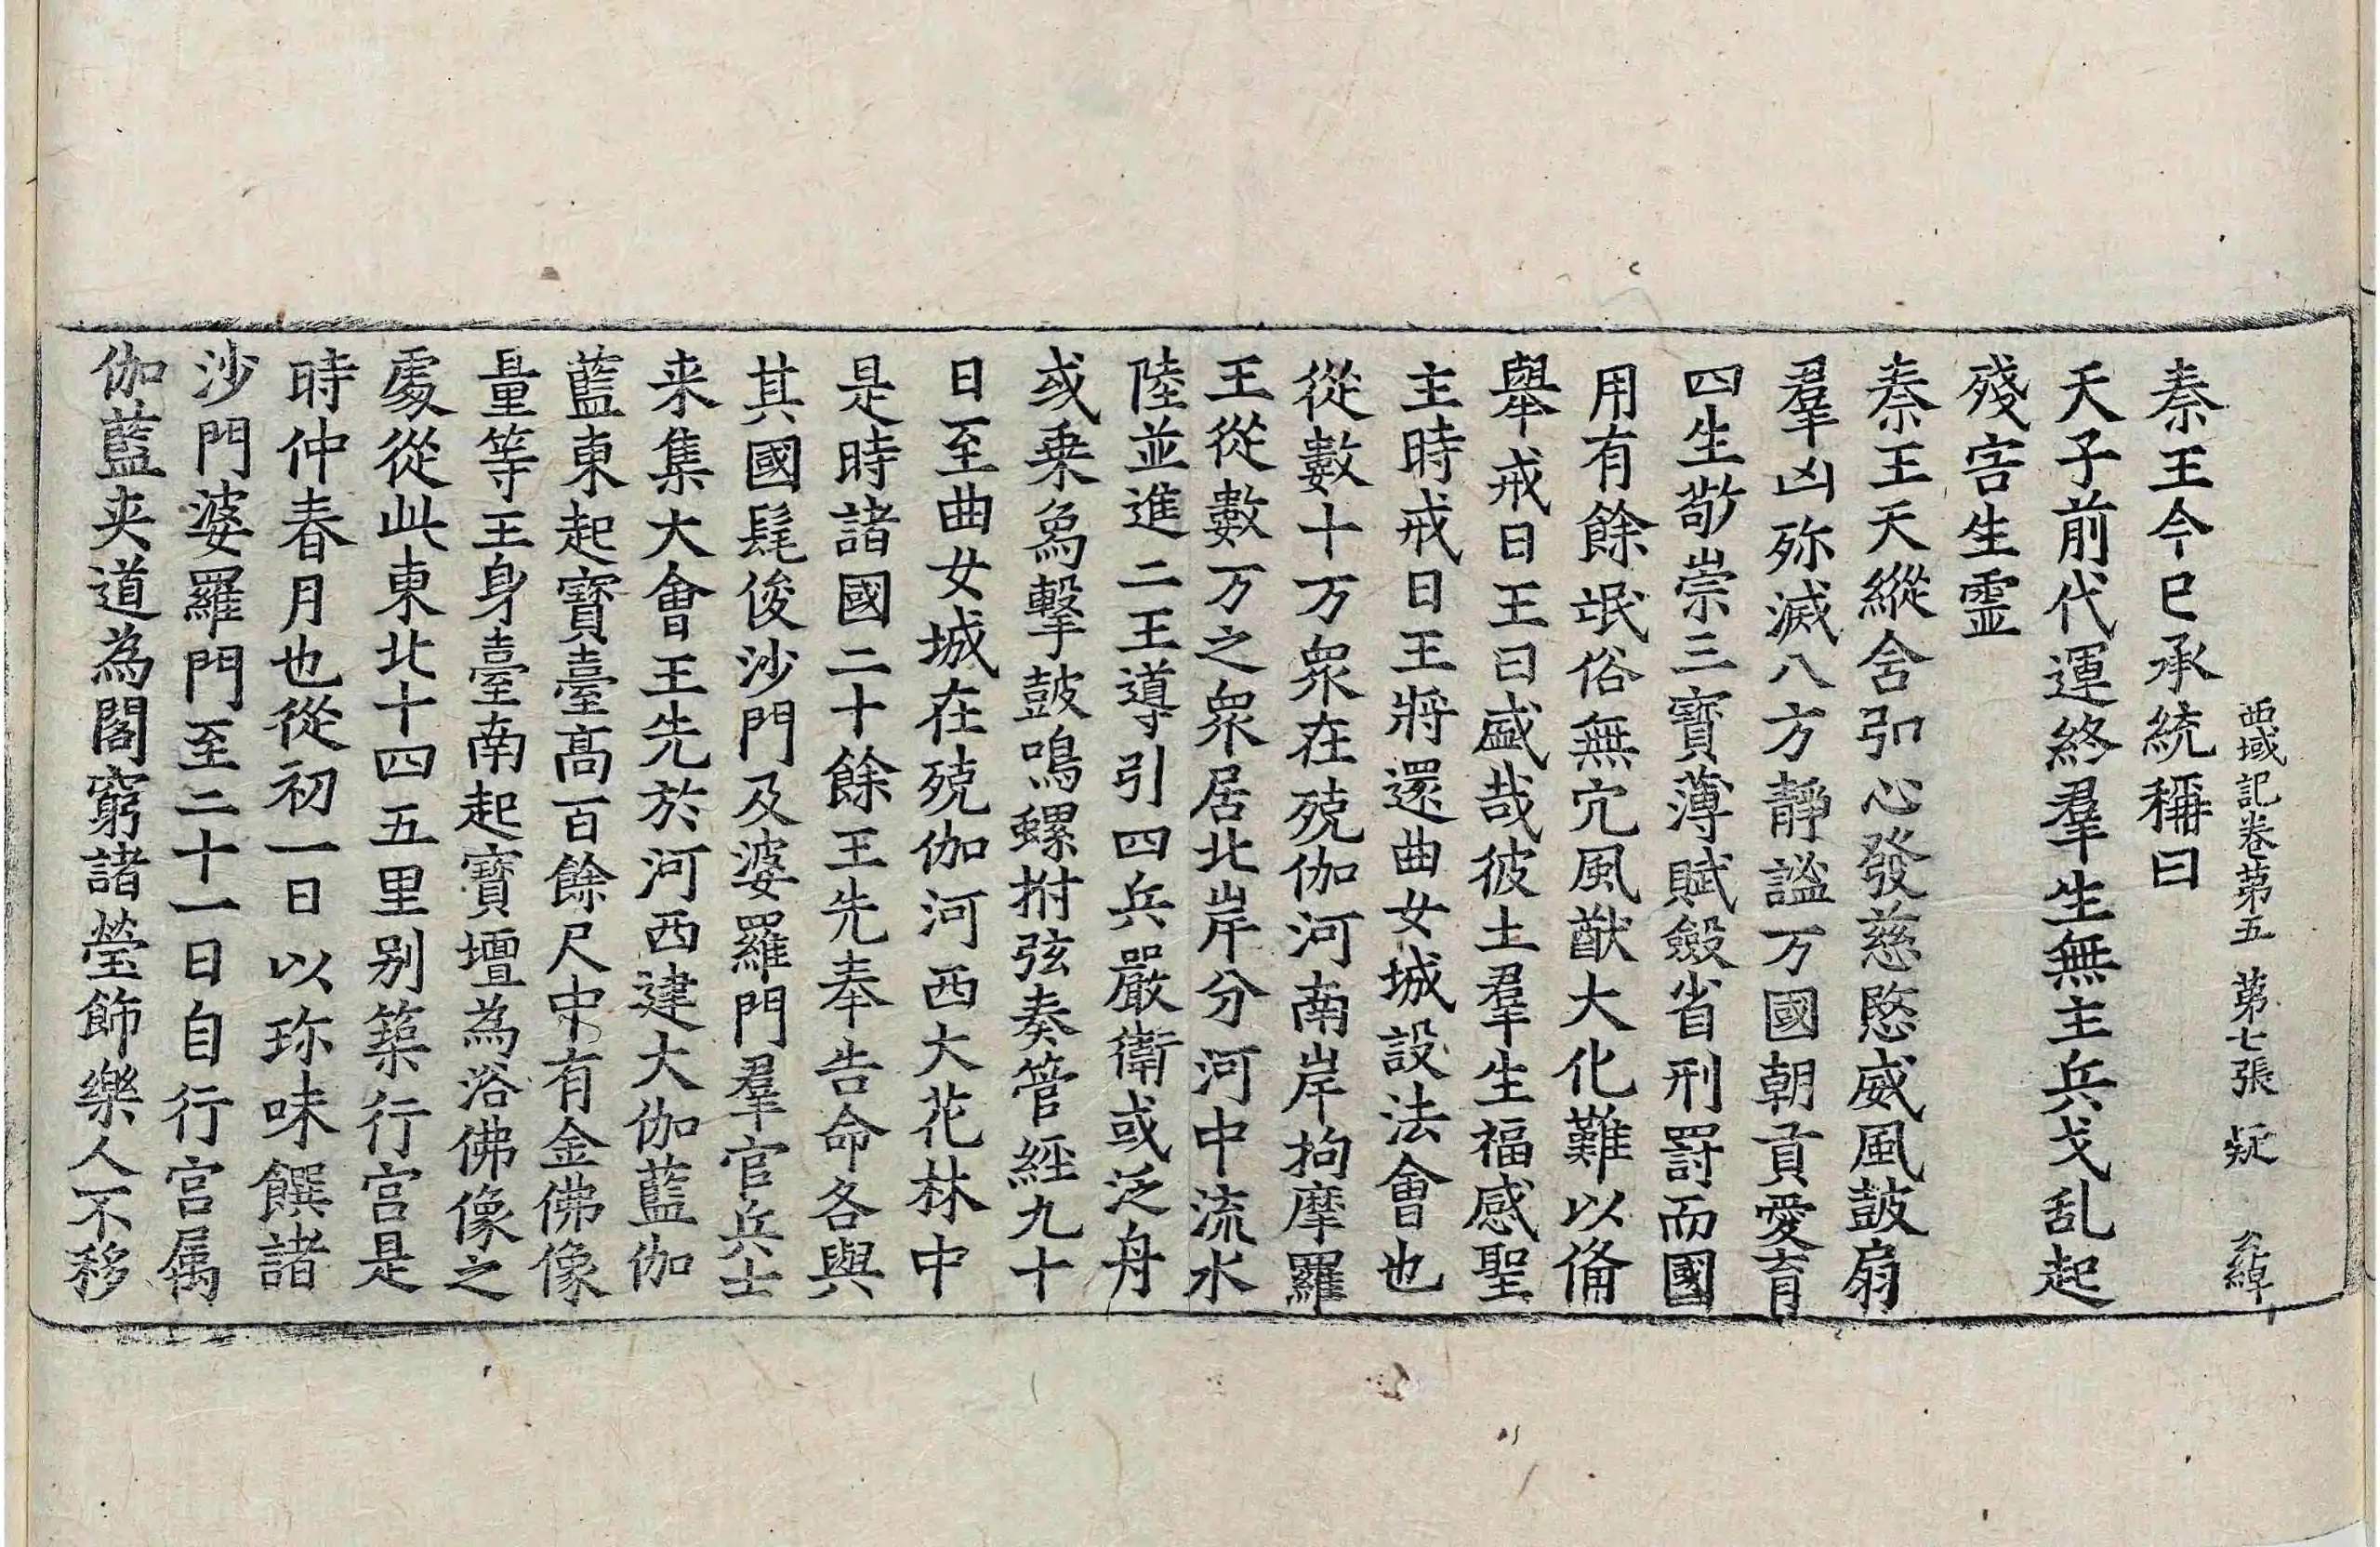 西域記卷第五 第七張 疑
秦王今已承統稱曰
天子前代運終羣生無主兵戈乱起
殘害生靈
秦王天縱含弘心發慈愍威風鼓扇
羣凶殄滅八方靜謐万國朝貢愛育
四生敬崇三寶薄賦斂省刑罸而國
用有餘氓俗無宄風猷大化難以俻
舉戒日王曰盛哉彼土羣生福感聖
主時戒日王將還曲女城設法會也
從數十万衆在殑伽河南岸拘摩羅
王從數万之衆居北岸分河中流水
陸並進二王導引四兵嚴衛或泛舟
或乗象擊鼓鳴螺拊弦奏管經九十
日至曲女城在殑伽河西大花林中
是時諸國二十餘王先奉告命各與
其國髦俊沙門及婆羅門羣官兵士
来集大會王先於河西建大伽藍伽
藍東起寳臺高百餘尺中有金佛像
量等王身臺南起寳壇為浴佛像之
處從此東北十四五里别築行宫是
時仲春月也從初一日以珎味饌諸
沙門婆羅門至二十一日自行宫属
伽藍夾道為閣窮諸瑩飾樂人不移